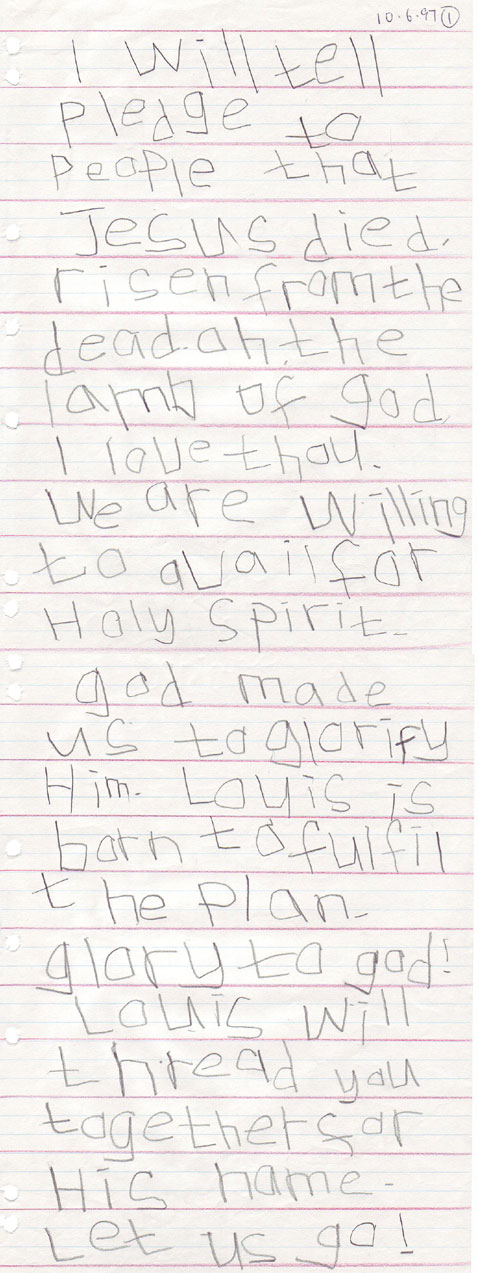 10.6.97 ①
I will tell
pledge to
people that
Jesus died.
risen from the
dead. oh, the
lamb of god.
I love thou.
We are willing
to avail for
Holy Spirit.
god made
us to glorify
Him. Louis is
born to fulfil
the plan.
glory to god!
Louis will
thread you
together for
His name.
Let us go!